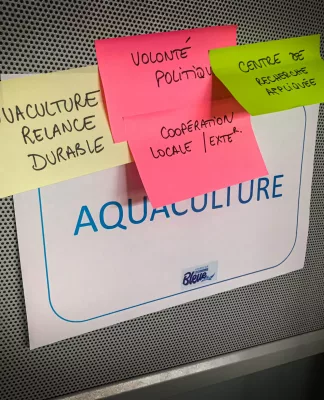 UACULTURE
RELANCE
DURABLE
VOLONTÉ
POLITIQU
CENTRE DE
RECHERCHE
APPLIQUÉE
COOPÉRATION
LOCALE / EXTER.
AQUACULTURE
Bleue